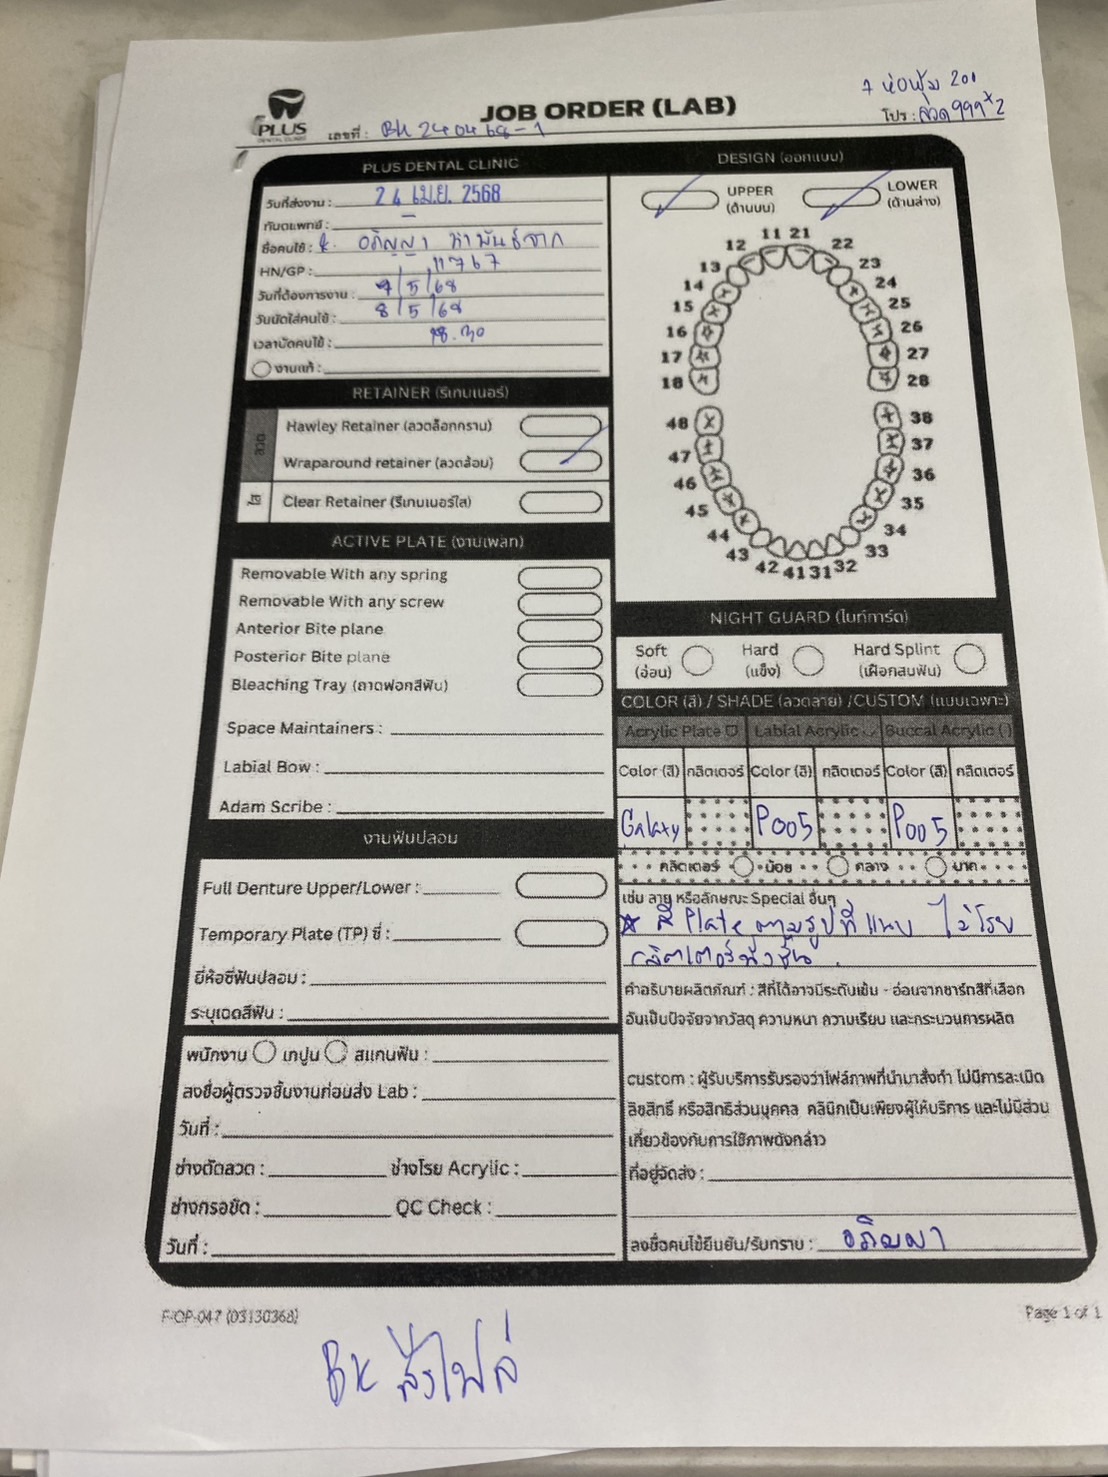 7 ห่อหุ้ม 200
JOB ORDER (LAB)
โปร : ลวด 999x2
PLUS
DENTAL CLINIC
เลขที่ : BK 240468-1
PLUS DENTAL CLINIC
วันที่ส่งงาน : 24 เม.ย. 2568
ทันตแพทย์ :
ชื่อคนไข้ : อภิญญา
HN/GP : 11767
วันที่ต้องการงาน : 7/5/68
วันนัดใส่คนไข้ : 8/5/68
เวลานัดคนไข้ : 18.30
งานแก้ :
RETAINER (รีเทนเนอร์)
ลวด
Hawley Retainer (ลวดล็อกกราม)
Wraparound retainer (ลวดล้อม)
ใส
Clear Retainer (รีเทนเนอร์ใส)
ACTIVE PLATE (งานเพลท)
Removable With any spring
Removable With any screw
Anterior Bite plane
Posterior Bite plane
Bleaching Tray (ถาดฟอกสีฟัน)
Space Maintainers :
Labial Bow :
Adam Scribe :
งานฟันปลอม
Full Denture Upper/Lower :
Temporary Plate (TP) ซี่ :
ยี่ห้อซี่ฟันปลอม :
ระบุเฉดสีฟัน :
พนักงาน เทปูน สแกนฟัน :
ลงชื่อผู้ตรวจชิ้นงานก่อนส่ง Lab :
วันที่ :
ช่างดัดลวด : ช่างโรย Acrylic :
ช่างกรอขัด : QC Check :
วันที่ :
DESIGN (ออกแบบ)
UPPER
(ด้านบน)
LOWER
(ด้านล่าง)
11 21
12 22
13 23
14 24
15 25
16 26
17 27
18 28
48 38
47 37
46 36
45 35
44 34
43 33
42 41 31 32
NIGHT GUARD (ไนท์การ์ด)
Soft
(อ่อน)
Hard
(แข็ง)
Hard Splint
(เฝือกสบฟัน)
COLOR (สี) / SHADE (ลวดลาย) /CUSTOM (แบบเฉพาะ)
Acrylic Plate Labial Acrylic Buccal Acrylic ( )
Color (สี) กลิตเตอร์ Color (สี) กลิตเตอร์ Color (สี) กลิตเตอร์
Galaxy P005 P005
กลิตเตอร์ น้อย กลาง มาก
เช่น ลาย หรือลักษณะ Special อื่นๆ
สี Plate ตามรูปที่แนบ ไม่โรย
กลิตเตอร์ทั้งชิ้น
คำอธิบายผลิตภัณฑ์ : สีที่ได้อาจมีระดับเข้ม - อ่อนจากชาร์ทสีที่เลือก
อันเป็นปัจจัยจากวัสดุ ความหนา ความเรียบ และกระบวนการผลิต
custom : ผู้รับบริการรับรองว่าไฟล์ภาพที่นำมาสั่งทำ ไม่มีการละเมิด
ลิขสิทธิ์ หรือสิทธิส่วนบุคคล คลินิกเป็นเพียงผู้ให้บริการ และไม่มีส่วน
เกี่ยวข้องกับการใช้ภาพดังกล่าว
ที่อยู่จัดส่ง :
ลงชื่อคนไข้ยืนยัน/รับทราบ : อภิญญา
F/OP-047 (03130368)
Page 1 of 1
BK ส่งไฟล์